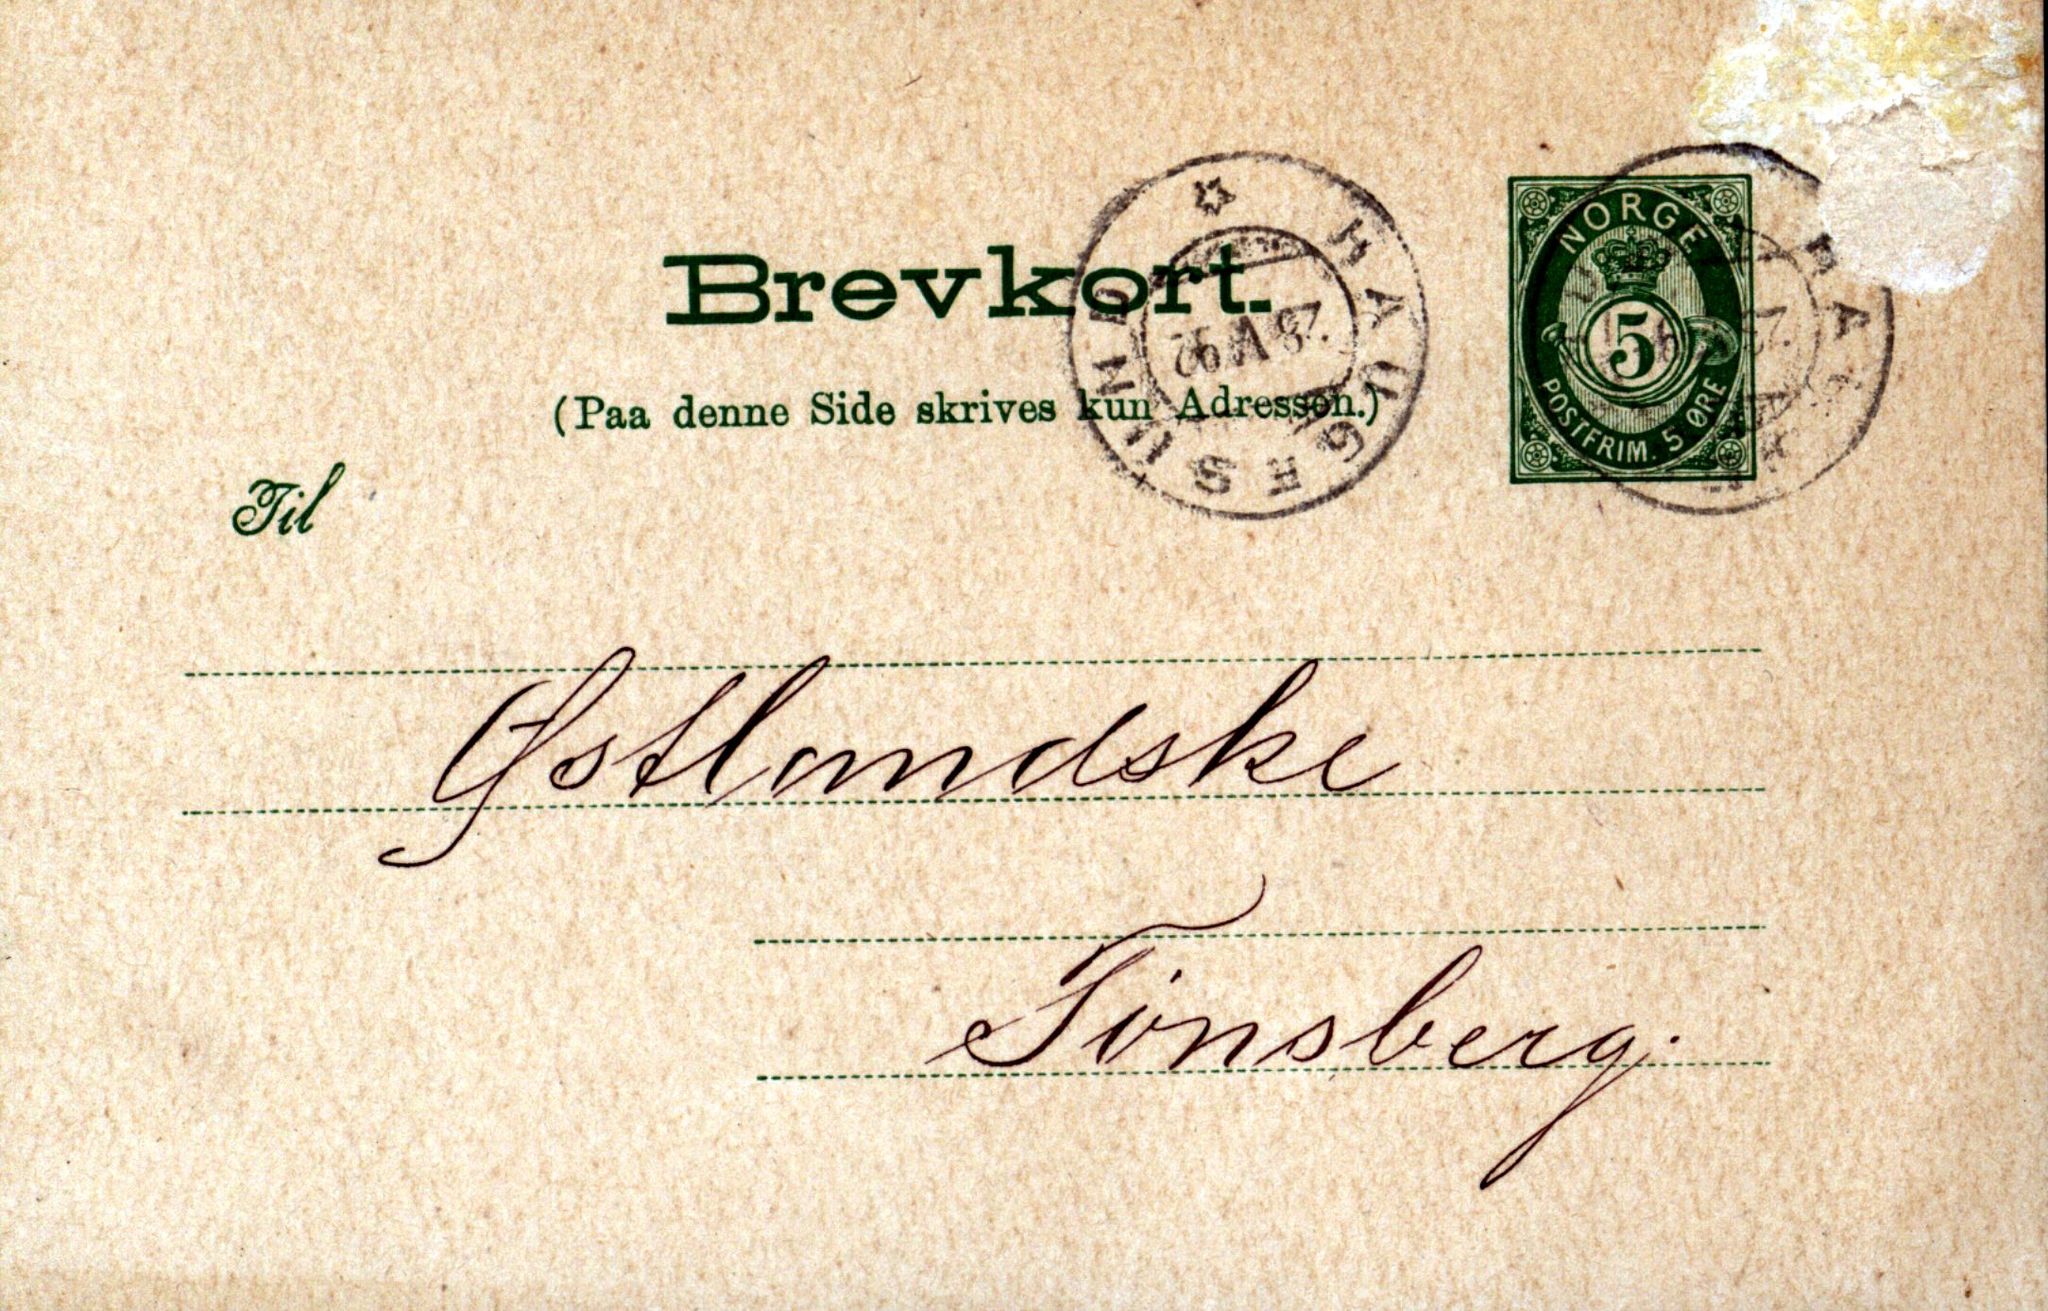 Brevkort.
(Paa denne Side skrives kun Adressen.)
HAUGESUND
NORGE
5
POSTFRIM. 5 ØRE
Til
Østlandske
Tønsberg.